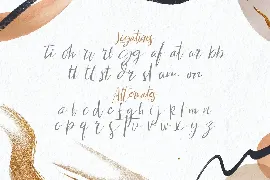 Ligatures
Ti ch rr rl egg af at ur bb
tt tl st or sl am on
Alternates
a b c d e f g h i j k l m n
o p q r s t u v w x y z